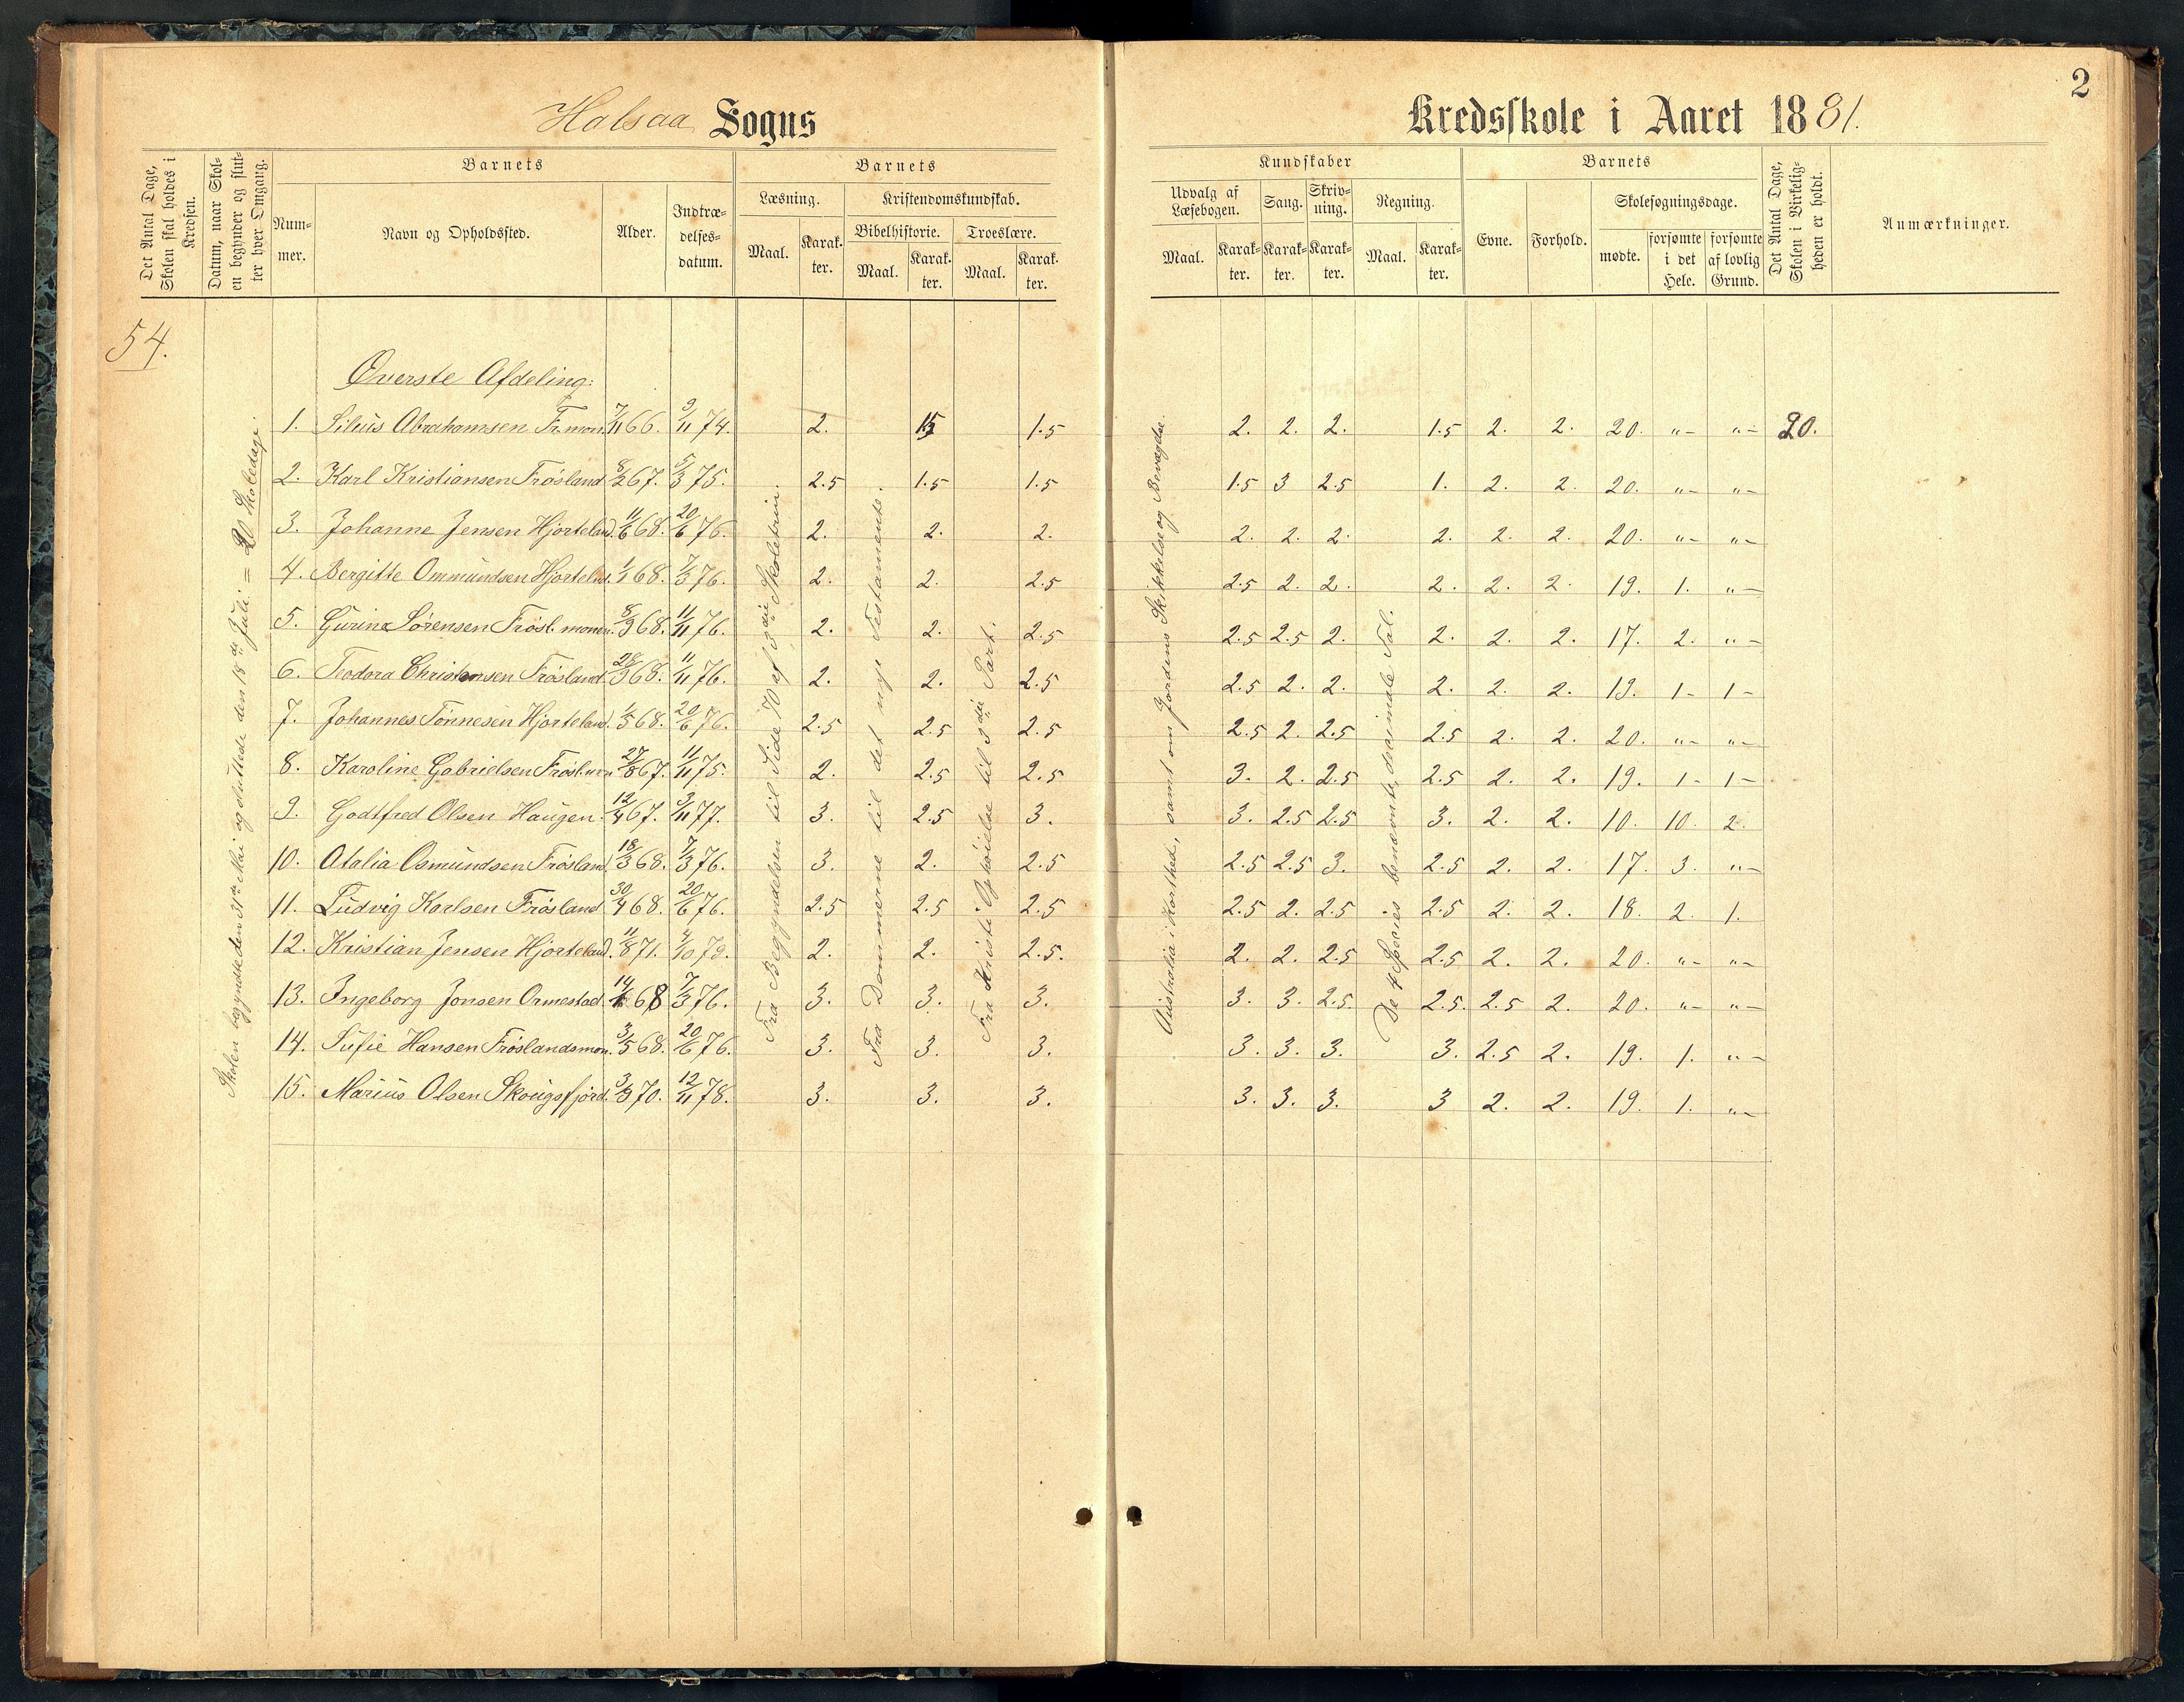 2
Halsaa Sogns Kredsskole i Aaret 1881.
Det Antal Dage, Skolen skal holdes i Kredsen.
Datum, naar Skolen begynder og slutter hver Omgang.
Barnets
Nummer.
Navn og Opholdssted.
Alder.
Indtrædelsesdatum.
Barnets
Læsning.
Maal.
Karakter.
Kristendomskundskab.
Bibelhistorie.
Maal.
Karakter.
Troeslære.
Maal.
Karakter.
Kundskaber
Udvalg af Læsebogen.
Maal.
Karakter.
Sang.
Karakter.
Skrivning.
Karakter.
Regning.
Maal.
Karakter.
Barnets
Evne.
Forhold.
Skolesøgningsdage.
mødte.
forsømte i det Hele.
forsømte af lovlig Grund.
Det Antal Dage, Skolen i Virkeligheden er holdt.
Anmærkninger.
54.
Skolen begyndte den 31te Mai og sluttede den 18de Juli = 20 Skoledage.
Øverste Afdeling:
Fra Begyndelsen til Side 70 af 3die Skoletrin.
Fra Dommerne til det nye Testamente.
Fra Kristi Ophøielse til 3die Part.
Australia i Korthed, samt om Jordens Skikkelse og Bevægelse
De 4 Species benævnte, decimale Tal.
1. Silius Abrahamsen Fr.mon. 7/11 66. 9/11 74. 2. 1.5 1.5 2. 2. 2. 1.5 2. 2. 20. "- "- 20.
2. Karl Kristiansen Frösland 8/2 67. 5/3 75. 2.5 1.5 1.5 1.5 3 2.5 1. 2. 2. 20. "- "-
3. Johanne Jensen Hjorteland. 11/6 68. 20/6 76. 2. 2. 2. 2. 2. 2. 2. 2. 2. 20. "- "-
4. Bergitte Ommundsen Hjortelnd. 1/1 68. 7/3 76. 2. 2. 2.5 2.5 2. 2. 2. 2. 2. 19. 1. "-
5. Gurine Sörensen Frösl. monen. 8/9 68. 11/11 76. 2. 2. 2.5 2.5 2.5 2. 2. 2. 2. 17. 2. "-
6. Teodora Christensen Frösland. 28/9 68. 11/11 76. 2. 2. 2.5 2.5 2. 2. 2. 2. 2. 19. 1- 1-
7. Johannes Tönnesen Hjorteland. 1/5 68. 20/6 76. 2.5 2.5 2.5 2.5 2. 2.5 2.5 2. 2. 20. "- "-
8. Karoline Gabrielsen Frösl.mon 27/8 67. 11/11 75. 2. 2.5 2.5 3. 2. 2.5 2.5 2. 2. 19. 1- 1-
9. Godtfred Olsen Haugen. 12/4 67. 3/11 77. 3. 2.5 3. 3. 2.5 2.5 3. 2. 2. 10. 10. 2.
10. Atalia Osmundsen Frösland. 18/3 68. 7/3 76. 3. 2. 2.5 2.5 2.5 3. 2.5 2. 2. 17. 3. "-
11. Ludvig Karlsen Frösland 30/4 68. 20/6 76. 2.5 2.5 2.5 2.5 2. 2.5 2.5 2. 2. 18. 2. 1.
12. Kristian Jensen Hjorteland. 11/8 71. 4/10 79. 2. 2. 2.5. 2. 2. 2.5 2.5 2. 2. 20. "- "-
13. Ingeborg Jonsen Ormestad. 14/1 68 7/3 76. 3. 3. 3. 3. 3. 2.5. 2.5. 2.5 2. 20. "- "-
14. Sufie Hansen Fröslandsmon. 3/5 68. 20/6 76. 3. 3. 3. 3. 3. 3. 3. 2.5 2. 19. 1. "-
15. Marius Olsen Skougsfjord. 3/3 70. 12/11 78. 3. 3. 3. 3. 3. 3. 3 2. 2. 19. 1. "-